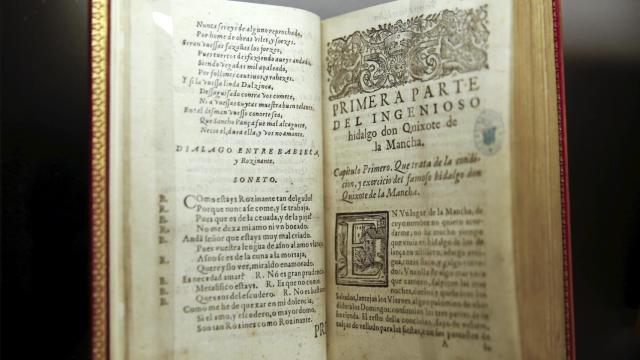 Nunca sereys de alguno reprochado,
Por home de obras viles, y soezes.
Seran vuessas fazañas los joezes,
Pues tuertos desfaziendo aueys andado,
Siendo vegadas mil apaleado,
Por follones cautiuos, y rahezes.
Y si la vuessa linda Dulzinea,
Desaguisado contra vos comete,
Ni a vuessas cuytas muestra buen talante,
En tal desmen vuesso conorte sea,
Que Sancho Pança fue mal alcaguete,
Necio el, dura ella, y vos no amante.
DIALAGO ENTRE BABIECA,
y Rozinante.
SONETO.
B. Como estays Rozinante tan delgado?
R. Porque nunca se come, y se trabaja,
B. Pues que es de la ceuada, y de la paja?
R. No me dexa mi amo ni vn bocado.
B. Andà señor que estays muy mal criado.
Pues vuestra lengua de asno al amo vltraja,
R. Asno se es de la cuna a la mortaja,
Quereys lo ver, miraldo enamorado.
B. Es necedad amar? R. No es gran prudencia
B. Metafisico estays. R. Es que no como
B. Quexaos del escudero. R. No es bastante
Como me he de quexar en mi dolencia,
Si el amo, y escudero, o mayordomo,
Son tan Rozines como Rozinante.
PRI
PRIMERA PARTE
DEL INGENIOSO
hidalgo don Quixote de
la Mancha.
Capitulo Primero. Que trata de la condi-
cion, y exercicio del famoso hidalgo don
Quixote de la Mancha.
EN Vn lugar de la Mancha,
de cuyo nombre no quiero acor-
darme, no ha mucho tiempo
que viuia vn hidalgo de los de
lança en astillero, adarga anti-
gua, rozin flaco, y galgo corre-
dor. Vna olla de algo mas va-
ca que carnero, salpicon las mas
noches, duelos y quebrantos los
Sabados, lantejas los Viernes, algun palomino de aña-
didura los Domingos: consumian las tres partes de su
hazienda. El resto della concluian, sayo de velarte,
calças de velludo para las fiestas, con sus pantuflos
A